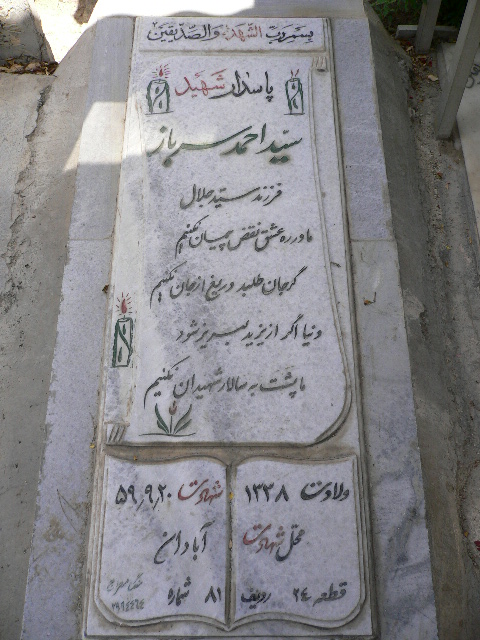 بسم رب الشهداء والصدیقین
پاسدار شهید
سید احمد سرباز
فرزند سید جلال
ما در ره عشق نقض پیمان نکنیم
گر جان طلبد دریغ از جان نکنیم
دنیا اگر از یزید لبریز شود
ما پشت به سالار شهیدان نکنیم
ولادت ۱۳۳۸ شهادت ۵۹٫۹٫۲۰
محل شهادت آبادان
قطعه ۲۴ ردیف ۸۱ شماره